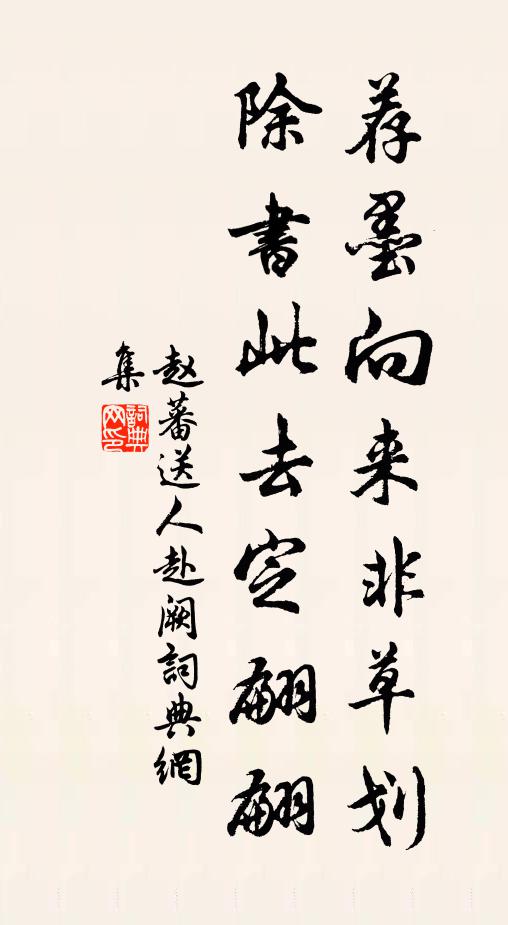 荐墨向来非草划
除书此去定翩翩
赵蕃送人赴阙詞典網
集
詞典网印